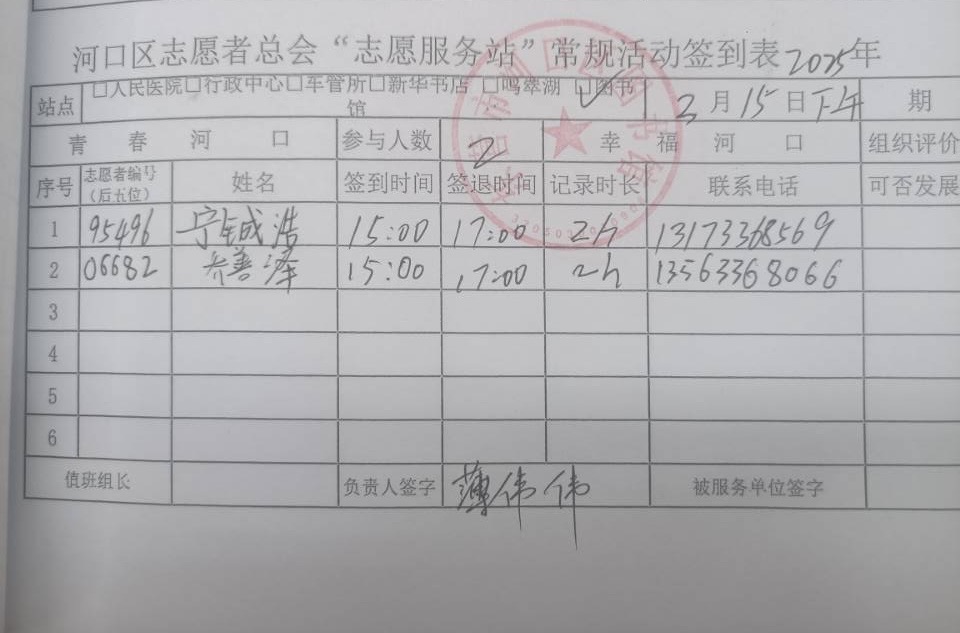 河口区志愿者总会“志愿服务站”常规活动签到表2025年
站点 □人民医院□行政中心□车管所□新华书店 □鸣翠湖 ☑图书馆 3月15日下午 期
青春河口 参与人数 2 幸福河口 组织评价
序号 志愿者编号（后五位） 姓名 签到时间 签退时间 记录时长 联系电话 可否发展
1 95496 宁铖浩 15:00 17:00 2h 13173368569
2 06682 善泽 15:00 17:00 2h 13563368066
3
4
5
6
值班组长 负责人签字 薄伟伟 被服务单位签字